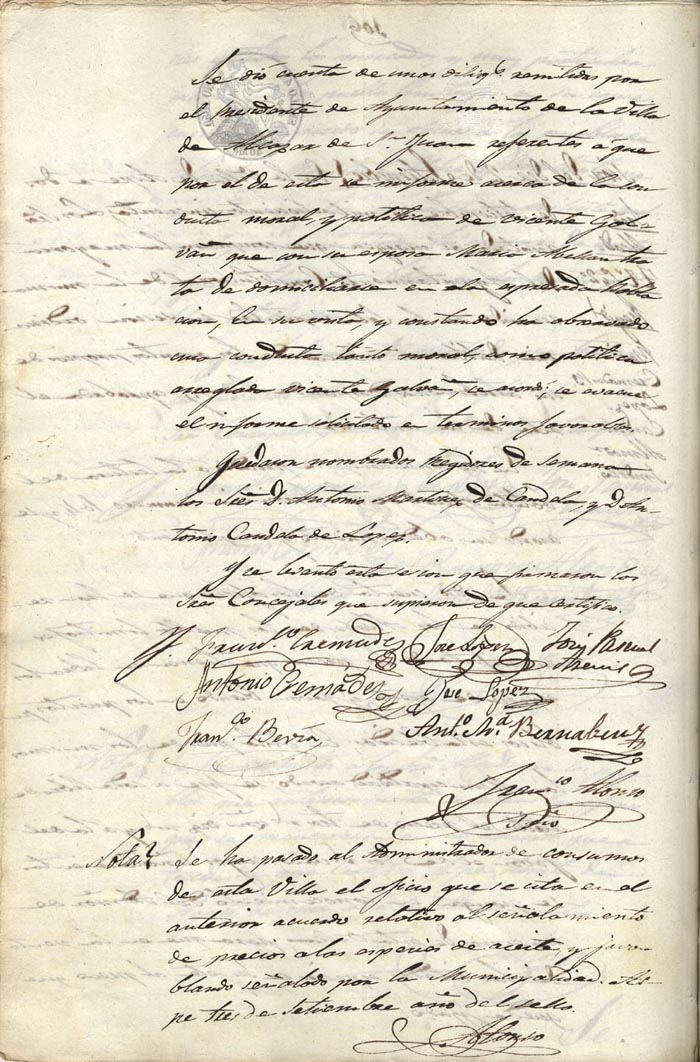 Se dió cuenta de unas diligs. remitidas por
el presidente de Ayuntamiento de la Villa
de Alcazar de Sn. Juan referentes á que
por el de esta se informe acerca de la con
ducta moral, y politica de Vicente Gal-
vañ que con su esposa Maria Abellan tra
ta de domiciliarse en la espresada Pobla
cion, En su vista, y constando ha observado
una conducta tanto moral, como politica
arreglada Vicente Galvañ, se acordó; se evacue
el informe solicitado en terminos favorables.
Quedaron nombrados Regidores de semana
los Sres. D. Antonio Martinez de Candela, y D. An-
tonio Candela de Lopez.
Y se levantó esta sesion que firmaron los
Sres. Concejales que supieron de que certifico.
Franco. Cremades Jose Lopez José Pascual
Antonio Cremádes Jose Lopez
Frando. Beviá Anto. Ma. Bernabeu
Franco. Alonso
Srio.
Nota. Se ha pasado al Administrador de consumos
de esta Villa el oficio que se cita en el
anterior acuerdo relativo al señalamiento
de precios a las especies de aceite, y javon
blando señalado por la Municipalidad. As-
pe tres de Setiembre año del sello.
Alonso